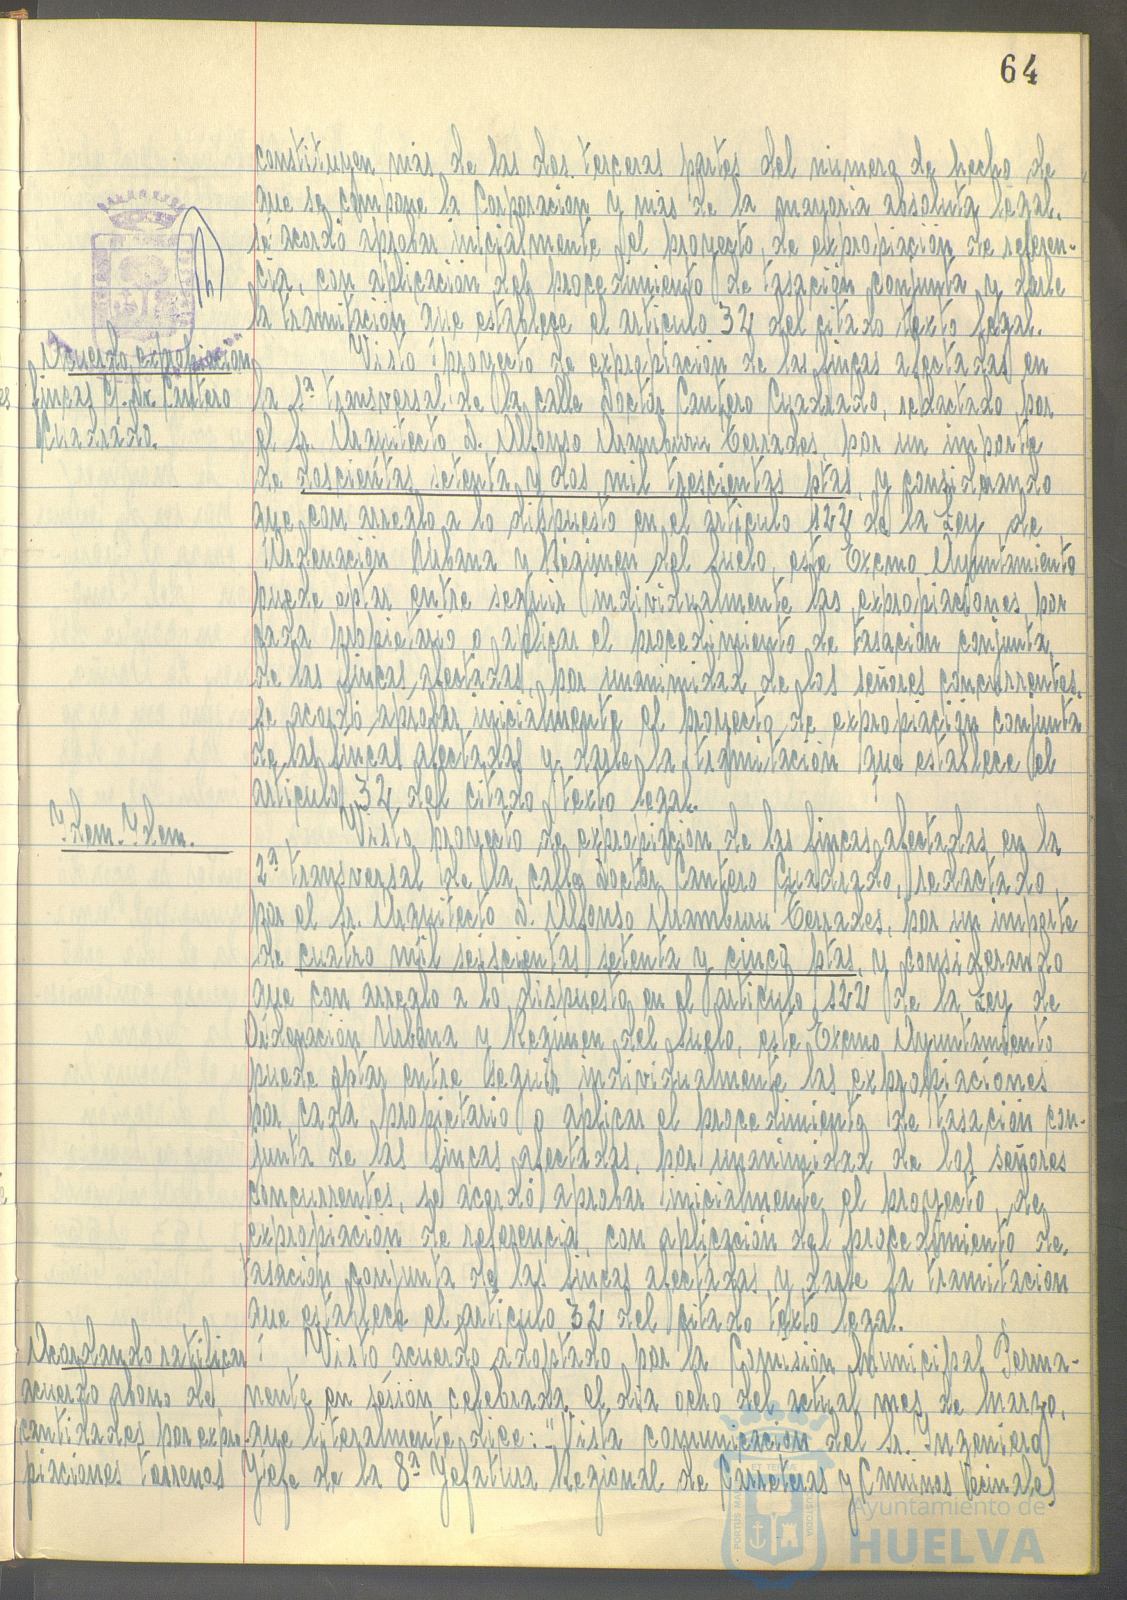 64
constituyen más de las dos terceras partes del número de hecho de
que se compone la Corporación y más de la mayoría absoluta legal.
se acordó aprobar inicialmente el proyecto, de expropiación de referen-
cia, con aplicación del procedimiento de tasación conjunta y darle
la tramitación que establece el artículo 32 del citado texto legal.
Acuerdo expropiacion
fincas C/. Dr. Cantero
Cuadrado.
Visto proyecto de expropiación de las fincas afectadas en
la 1ª transversal de la calle Doctor Cantero Cuadrado, redactado por
el Sr. Arquitecto D. Alfonso Aramburu Terrades, por un importe
de doscientas setenta y dos mil trescientas ptas, y considerando
que con arreglo a lo dispuesto en el artículo 122 de la Ley de
Ordenación Urbana y Régimen del Suelo, este Excmo Ayuntamiento
puede optar entre seguir individualmente las expropiaciones por
cada propietario o aplicar el procedimiento de tasación conjunta
de las fincas afectadas, por unanimidad de los señores concurrentes.
se acordó aprobar inicialmente el proyecto de expropiación conjunta
de las fincas afectadas y darle la tramitación que establece el
artículo 32 del citado texto legal.
Idem. Idem.
Visto proyecto de expropiación de las fincas afectadas en la
2ª transversal de la calle Doctor Cantero Cuadrado, redactado,
por el Sr. Arquitecto D. Alfonso Aramburu Terrades, por un importe
de cuatro mil seiscientas setenta y cinco ptas, y considerando
que con arreglo a lo dispuesto en el artículo 122 de la Ley de
Ordenación Urbana y Regimen del Suelo, este Excmo Ayuntamiento
puede optar entre seguir individualmente las expropiaciones
por cada propietario o aplicar el procedimiento de tasación con-
junta de las fincas afectadas, por unanimidad de los señores
concurrentes, se acordó aprobar inicialmente el proyecto, de
expropiación de referencia, con aplicación del procedimiento de
tasación conjunta de las fincas afectadas y darle la tramitacion
que establece el artículo 32 del citado texto legal.
Acordando ratificar
acuerdo abono de
cantidades por expro-
piaciones terrenos
Visto acuerdo adoptado por la Comisión Municipal Perma-
nente en sesión celebrada el día ocho del actual mes de marzo,
que literalmente dice: "Vista comunicación del Sr. Ingeniero
Jefe de la 8ª Jefatura Regional de Carreteras y Caminos Vecinales
PORTUS MARIS ET TERRAE CUSTODIA
Ayuntamiento de
HUELVA